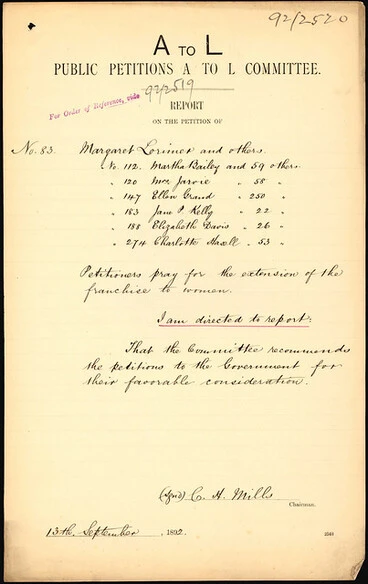 92/2520
A TO L
PUBLIC PETITIONS A TO L COMMITTEE.
For Order of Reference, vide 92/2519
REPORT
ON THE PETITION OF
No. 83. Margaret Lorimer and others.
No. 112. Martha Bailey and 59 others
" 120 Mrs Jarvie " 58 "
" 147 Ellen Grand " 250 "
" 183 Jane P. Kelly " 22 "
" 188 Elizabeth Davis " 26 "
" 274 Charlotte " 53 "
Petitioners pray for the extension of the
franchise to women.
I am directed to report:
That the Committee recommends
the petitions to the Government for
their favorable consideration.
(Sgnd) C. H. Mills
Chairman.
13th. September, 1892.